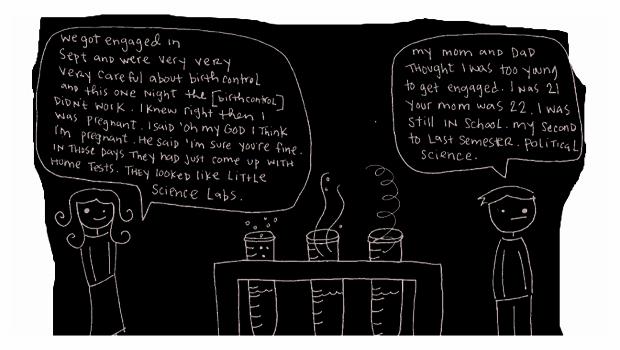 we got engaged in
Sept and were very very
very careful about birth control
and this one night the [birthcontrol]
DIDN'T WORK. I knew right then I
was pregnant. I said 'oh my GOD I Think
I'm pregnant. He said 'I'm sure you're fine.
IN those DAYS THEY HAD JUST come up WITH
HOME TESTS. THEY LOOKED LIKE LITTLE
SCIENCE LABS.
my mom AND DAD
THOUGHT I WAS too young
to get engaged. I WAS 21
your mom WAS 22. I WAS
STILL IN SCHOOL. my SECOND
to LAST SEMESTER. POLITICAL
SCIENCE.